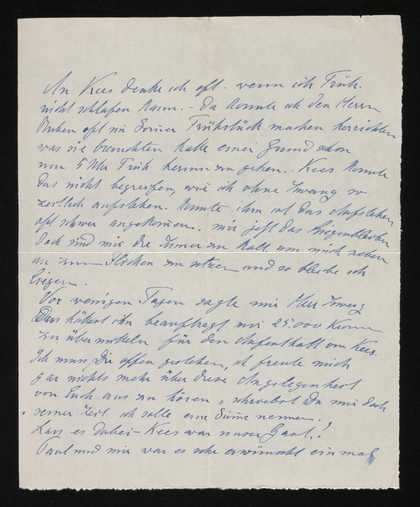 An Kees denke ich oft. wenn ich Früh
nicht schlafen kann. - Da konnte ich den Herrn
oft im Frühstück machen herrichten
was sie brauchten hatte einen Grund schon
um 5 Uhr Früh herum zu gehen. Kees konnte
das nicht begreifen, wie ich ohne Zwang so
zeitlich aufstehen konnte. ihm ist das Aufstehen
oft schwer angekommen. mir jetzt das liegenbleiben
Doch sind mir die Zimmer zu kalt um mich neben
an zum zu setzen und so bleibe ich
liegen.
Vor wenigen Tagen sagte mir Herr
Du hättest ihn beauftragt mir 25.000 Kronen
zu übermitteln für den Aufenthalt von Kees.
Ich muss Dir offen gestehen, es freute mich
gar nichts mehr über diese Angelegenheit
von Euch aus zu hören, schreibst Du mir doch
seiner Zeit ich solle eine Summe nennen.
Lass es dabei - Kees war unser Gast!
Paul und mir war es sehr erwünscht einmal